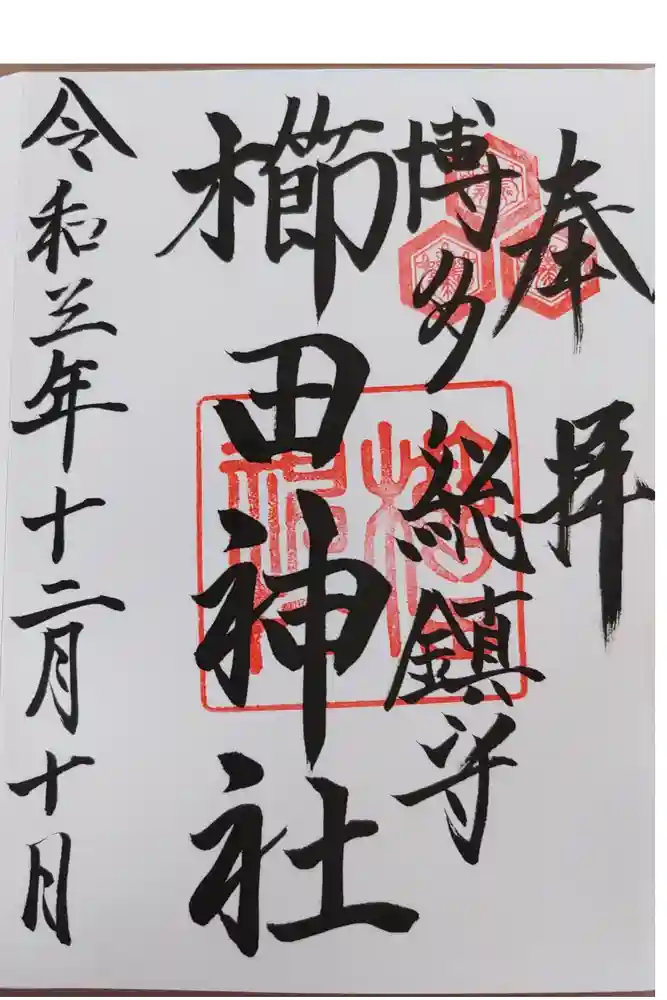 奉拝
博多総鎮守
櫛田神社
令和三年十二月十月